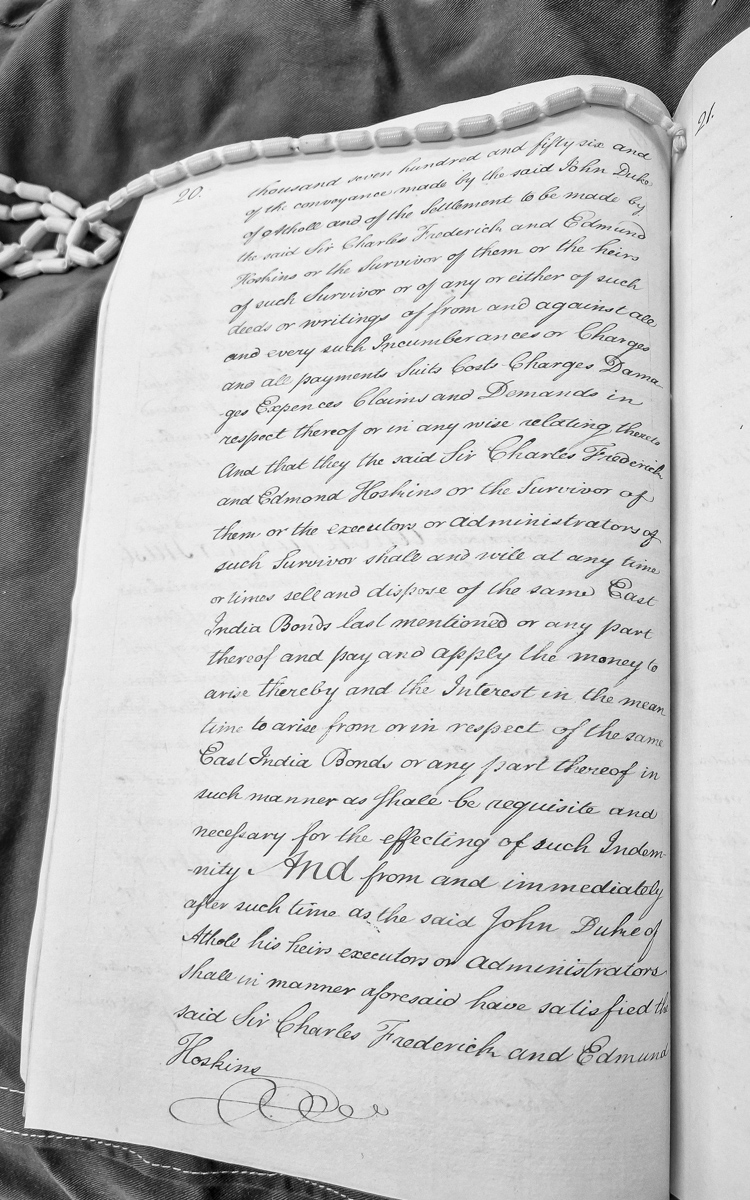 20.
thousand seven hundred and fifty six and
of the conveyance made by the said John Duke
of Atholl and of the Settlement to be made by
the said Sir Charles Frederick and Edmund
Hoskins or the Survivor of them or the heirs
of such Survivor or of any or either of such
deeds or writings of from and against all
and every such Incumberances or Charges
and all payments Suits Costs Charges Dama-
ges Expences Claims and Demands in
respect thereof or in any wise relating thereto
And that they the said Sir Charles Frederick
and Edmond Hoskins or the Survivor of
them or the executors or administrators of
such Survivor shall and will at any time
or times sell and dispose of the same East
India Bonds last mentioned or any part
thereof and pay and apply the money to
arise thereby and the Interest in the mean
time to arise from or in respect of the same
East India Bonds or any part thereof in
such manner as shall be requisite and
necessary for the effecting of such Indem-
-nity And from and immediately
after such time as the said John Duke of
Atholl his heirs executors or administrators
shall in manner aforesaid have satisfied the
said Sir Charles Frederick and Edmund
Hoskins
21.